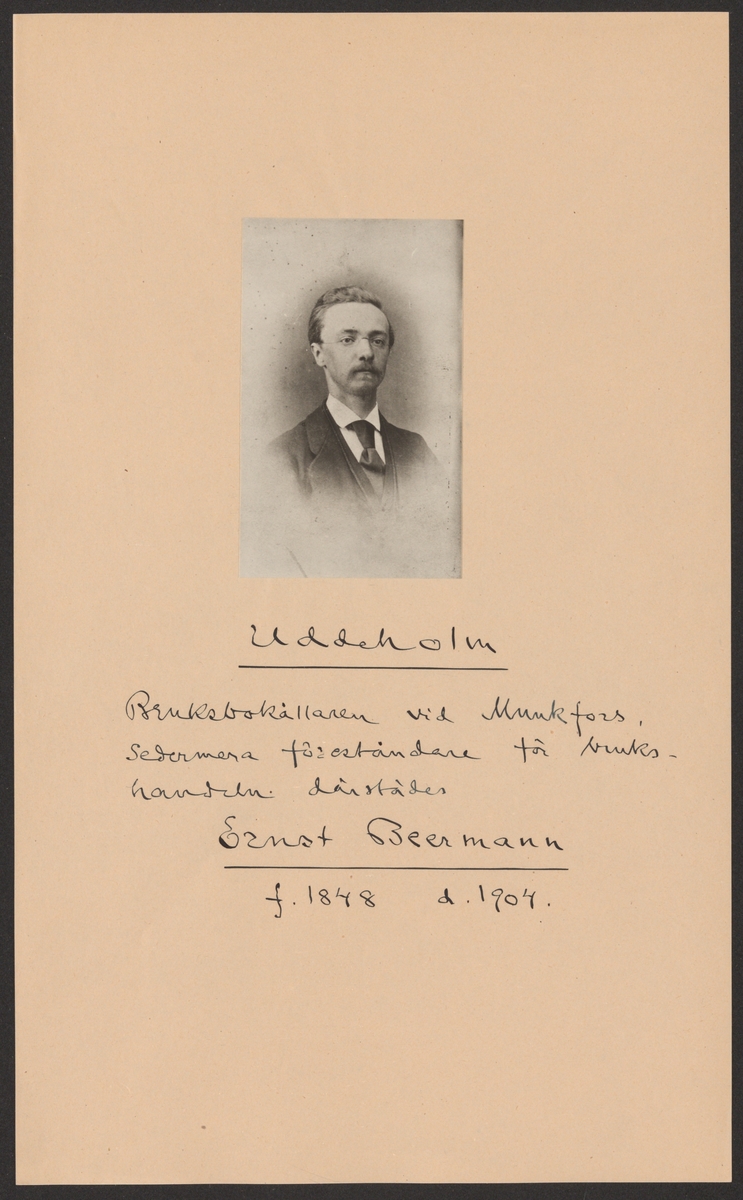 Uddeholm
Bruksbokållaren vid Munkfors,
sedermera föreståndare för bruks-
handeln därstädes
Ernst Beermann
f. 1848 d. 1904.